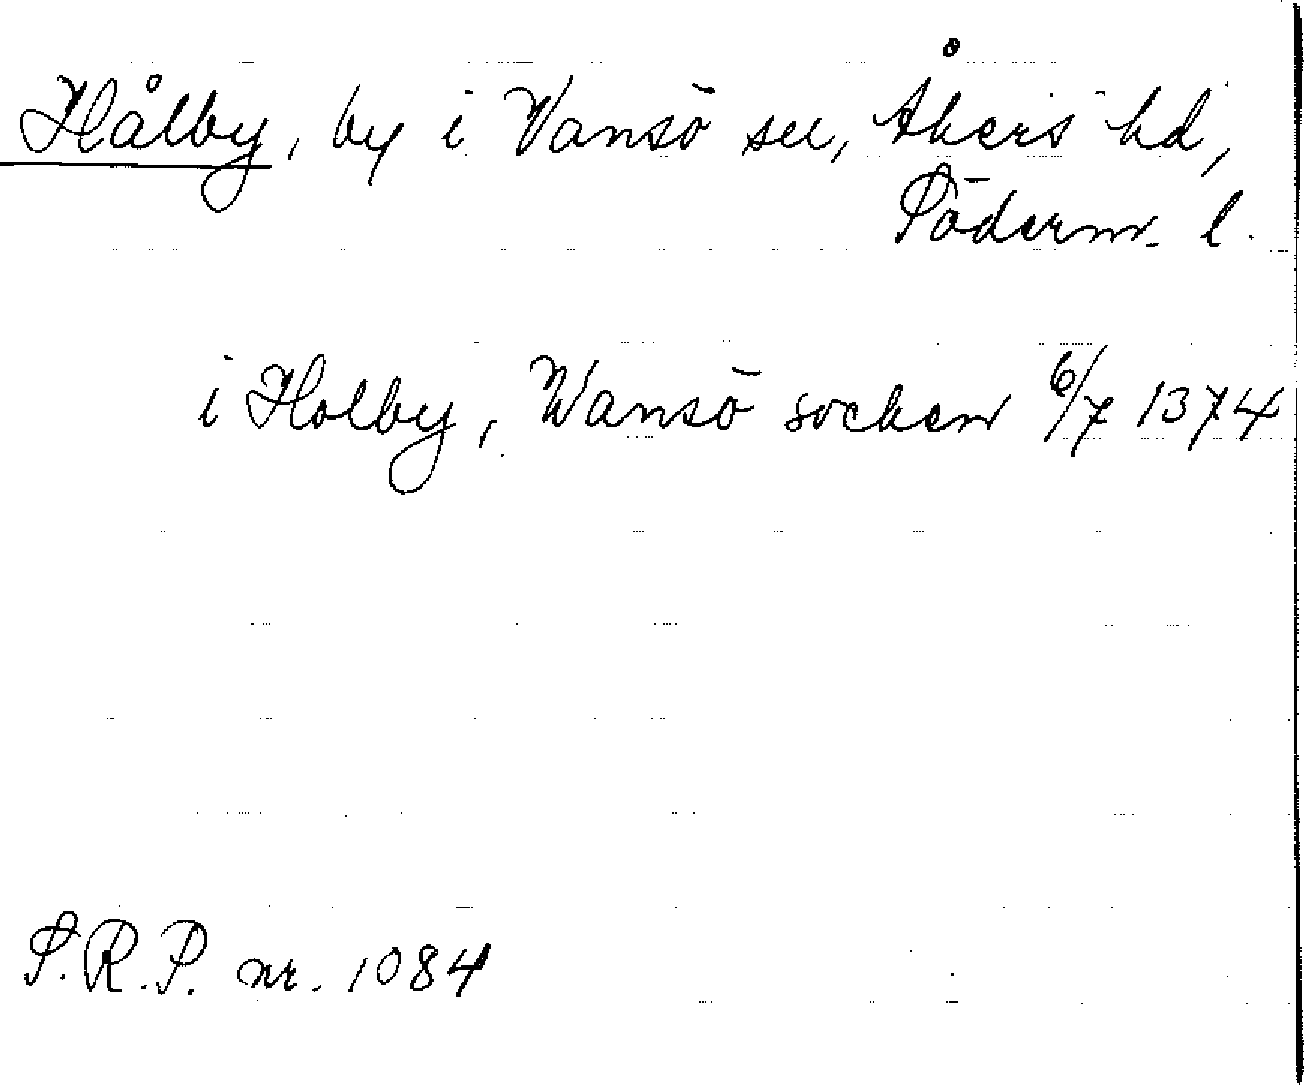 Hålby, by i Vansö sn, Åkers hd,
Söderm. l.
i Holby, Wansö socken 6/7 1374
S.R.P. nr. 1084